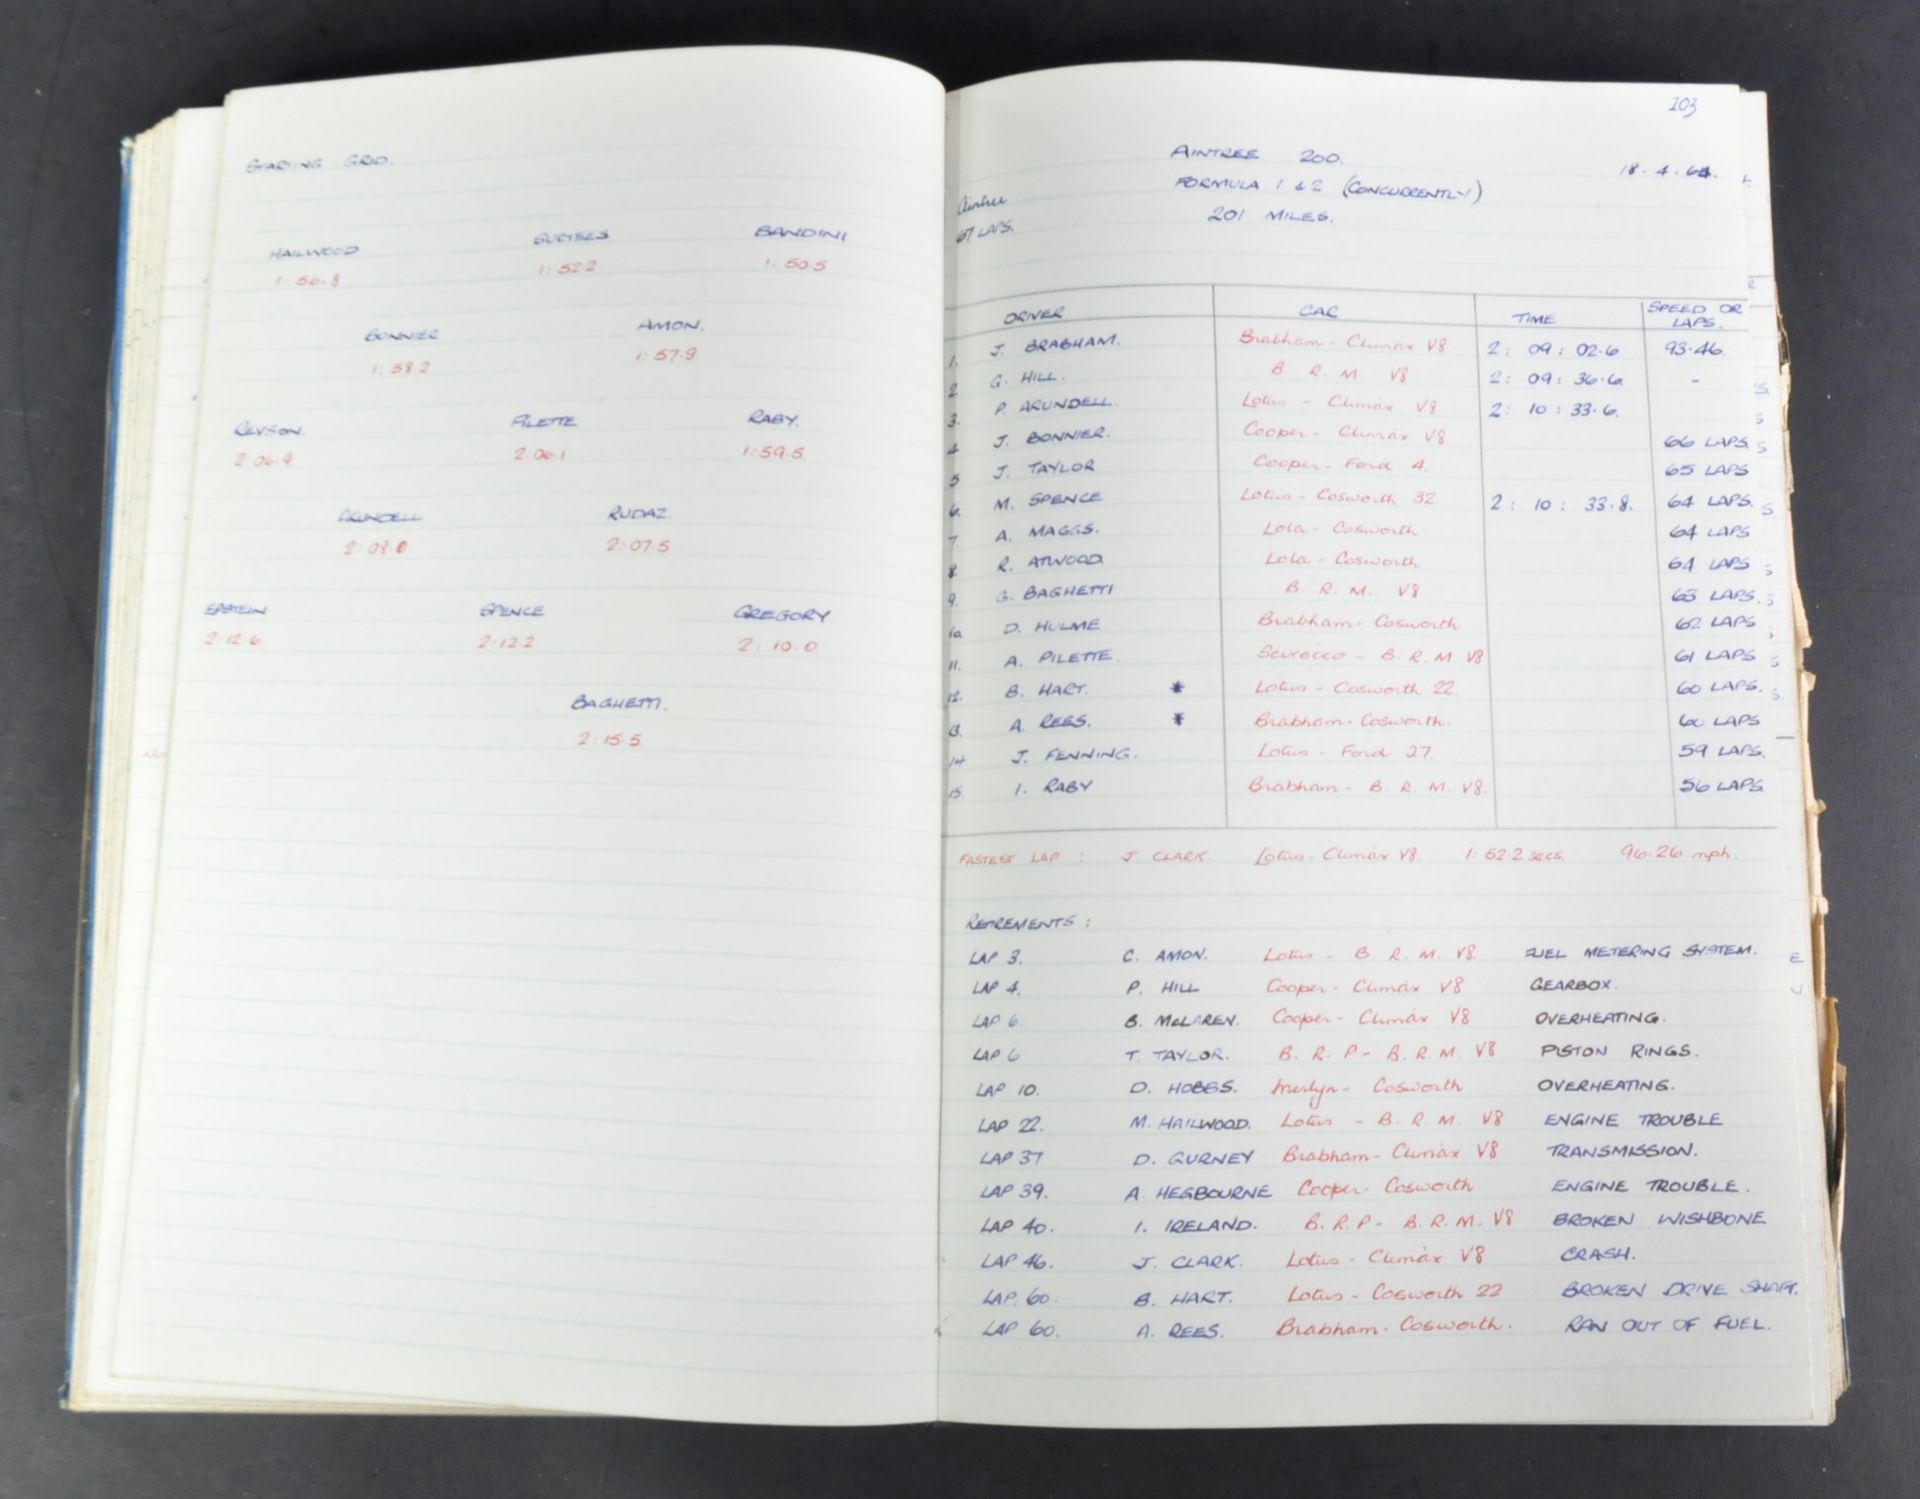 STARTING GRID.
HAILWOOD SURTEES BANDINI
1:56.8 1:52.2 1:50.5
BONNIER AMON.
1:58.2 1:57.9
REVSON. PILETTE RABY.
2:06.9 2:06.1 1:59.5
ARUNDELL RUDAZ.
2:08.0 2:07.5
EPSTEIN SPENCE GREGORY
2:12.6 2:12.2 2:10.0
BAGHETTI.
2:15.5
103
AINTREE 200. 18.4.64.
FORMULA 1 & 2 (CONCURRENTLY)
Aintree 201 MILES.
67 LAPS.
DRIVER CAR TIME SPEED OR LAPS.
1. J. BRABHAM. Brabham - Climax V8 2: 09: 02.6 93.46
2 G. HILL. B R. M. V8 2: 09: 36.6 -
3. P. ARUNDELL. Lotus - Climax V8 2: 10: 33.6.
4 J. BONNIER. Cooper - Climax V8 66 LAPS.
5 J. TAYLOR Cooper - Ford 4. 65 LAPS
6. M. SPENCE Lotus - Cosworth 32. 2: 10: 33.8. 64 LAPS.
7. A. MAGGS. Lola - Cosworth. 64 LAPS
8. R. ATWOOD Lola - Cosworth. 64 LAPS
9. G. BAGHETTI B. R. M. V8 63 LAPS.
10. D. HULME Brabham - Cosworth 62 LAPS
11. A. PILETTE. Scirocco - B. R. M V8 61 LAPS
12. B. HART. * Lotus - Cosworth 22. 60 LAPS.
13. A. REES. * Brabham - Cosworth. 60 LAPS
14 J. FENNING. Lotus - Ford 27. 59 LAPS.
15. I. RABY Brabham - B. R. M. V8. 56 LAPS
FASTEST LAP : J. CLARK. Lotus - Climax V8. 1:52.2 secs. 96.26 mph.
RETIREMENTS :
LAP 3. C. AMON. Lotus - B R. M. V8. FUEL METERING SYSTEM.
LAP 4. P. HILL Cooper - Climax V8 GEARBOX.
LAP 6. B. McLAREN. Cooper - Climax V8 OVERHEATING.
LAP 6 T. TAYLOR. B. R. P - B. R. M. V8 PISTON RINGS.
LAP 10. D. HOBBS. Merlyn - Cosworth OVERHEATING.
LAP 22. M. HAILWOOD. Lotus - B. R. M. V8 ENGINE TROUBLE
LAP 37 D. GURNEY Brabham - Climax V8 TRANSMISSION.
LAP 39. A. HEGBOURNE Cooper - Cosworth ENGINE TROUBLE.
LAP 40. I. IRELAND. B. R. P - B. R. M. V8 BROKEN WISHBONE
LAP 46. J. CLARK. Lotus - Climax V8 CRASH.
LAP. 60. B. HART. Lotus - Cosworth 22 BROKEN DRIVE SHAFT.
LAP 60. A. REES. Brabham - Cosworth. RAN OUT OF FUEL.